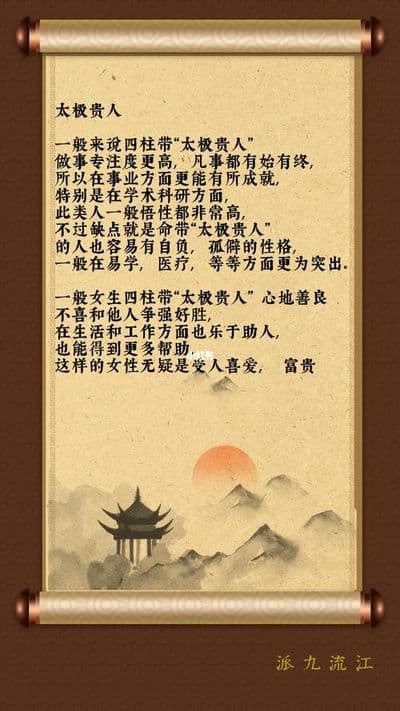 太极贵人
一般来说四柱带“太极贵人”
做事专注度更高, 凡事都有始有终,
所以在事业方面更能有所成就,
特别是在学术科研方面,
此类人一般悟性都非常高,
不过缺点就是命带“太极贵人”
的人也容易有自负, 孤僻的性格,
一般在易学, 医疗, 等等方面更为突出.
一般女生四柱带“太极贵人” 心地善良
不喜和他人争强好胜,
在生活和工作方面也乐于助人,
也能得到更多帮助,
这样的女性无疑是受人喜爱, 富贵
派九流江